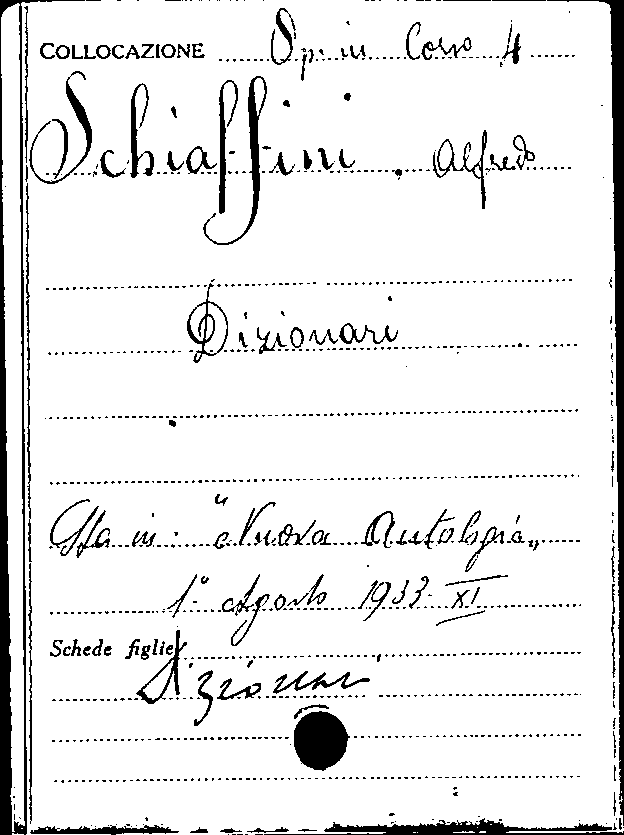 COLLOCAZIONE Op. in Corso 4
Schiaffini. Alfredo
Dizionari
Sta in: "Nuova Antologia„
1° Agosto 1933 XI
Schede figlie
Dizionari